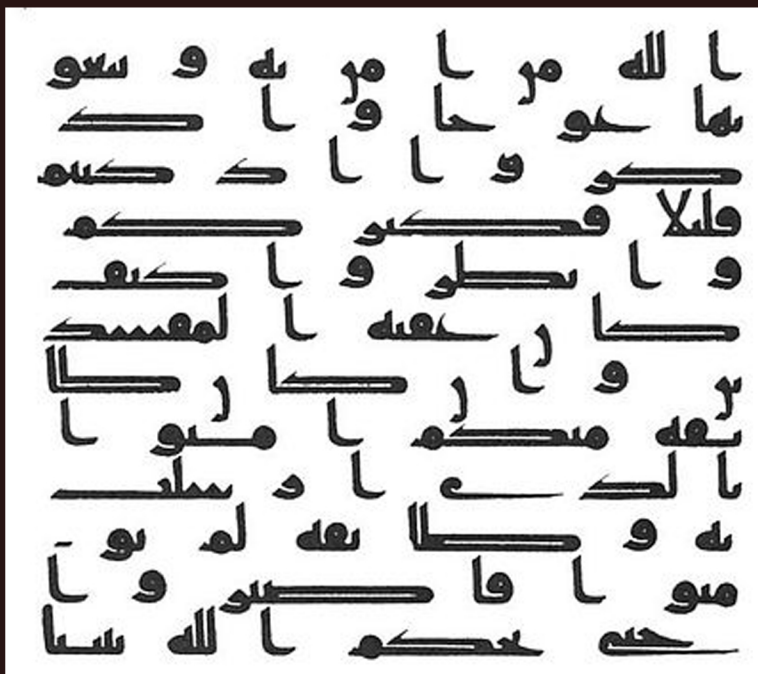 الله من امن به وتبغو
نها عوجا واذ
كروا اذ كنتم
قليلا فكثركم
وانظروا كيف
كان عقبة المفسد
ين وان كان طا
ئفة منكم امنوا
بالذي ارسلت
به وطائفة لم يو
منوا فاصبروا
حتى يحكم الله بيننا